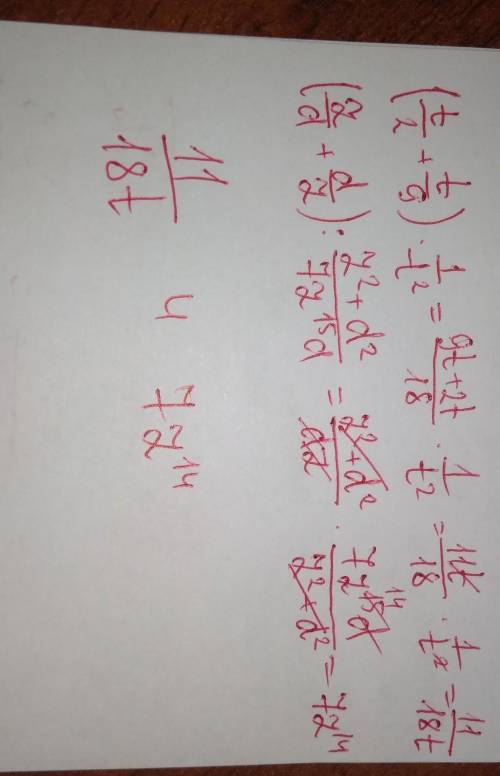 (t/2 + t/9) · 1/t² = (9t+2t)/18 · 1/t² = 11t/18 · 1/t² = 11/18t
(z/d + d/z) : (z²+d²)/(7z¹⁵d) = (z²+d²)/(dz) · (7z¹⁵d)/(z²+d²) = 7z¹⁴
11/18t и 7z¹⁴